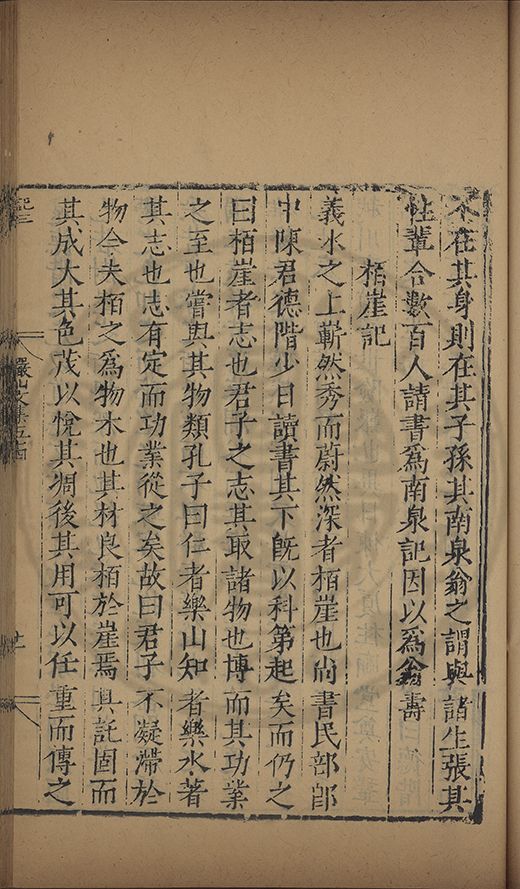 不在其身則在其子孫其南泉翁之謂與諸生張其
性輩合數百人請書爲南泉記因以爲翁壽
栢崖記
義水之上嶄然秀而蔚然深者栢崖也尚書民部郎
中陳君德階少日讀書其下旣以科第起矣而仍之
曰栢崖者志也君子之志其取諸物也博而其功業
之至也嘗與其物類孔子曰仁者樂山知者樂水著
其志也志有定而功業從之矣故曰君子不凝滯於
物今夫栢之爲物木也其材良栢於崖焉具託固而
其成大其色茂以悅其凋後其用可以任重而傳之
儼山文集五十四